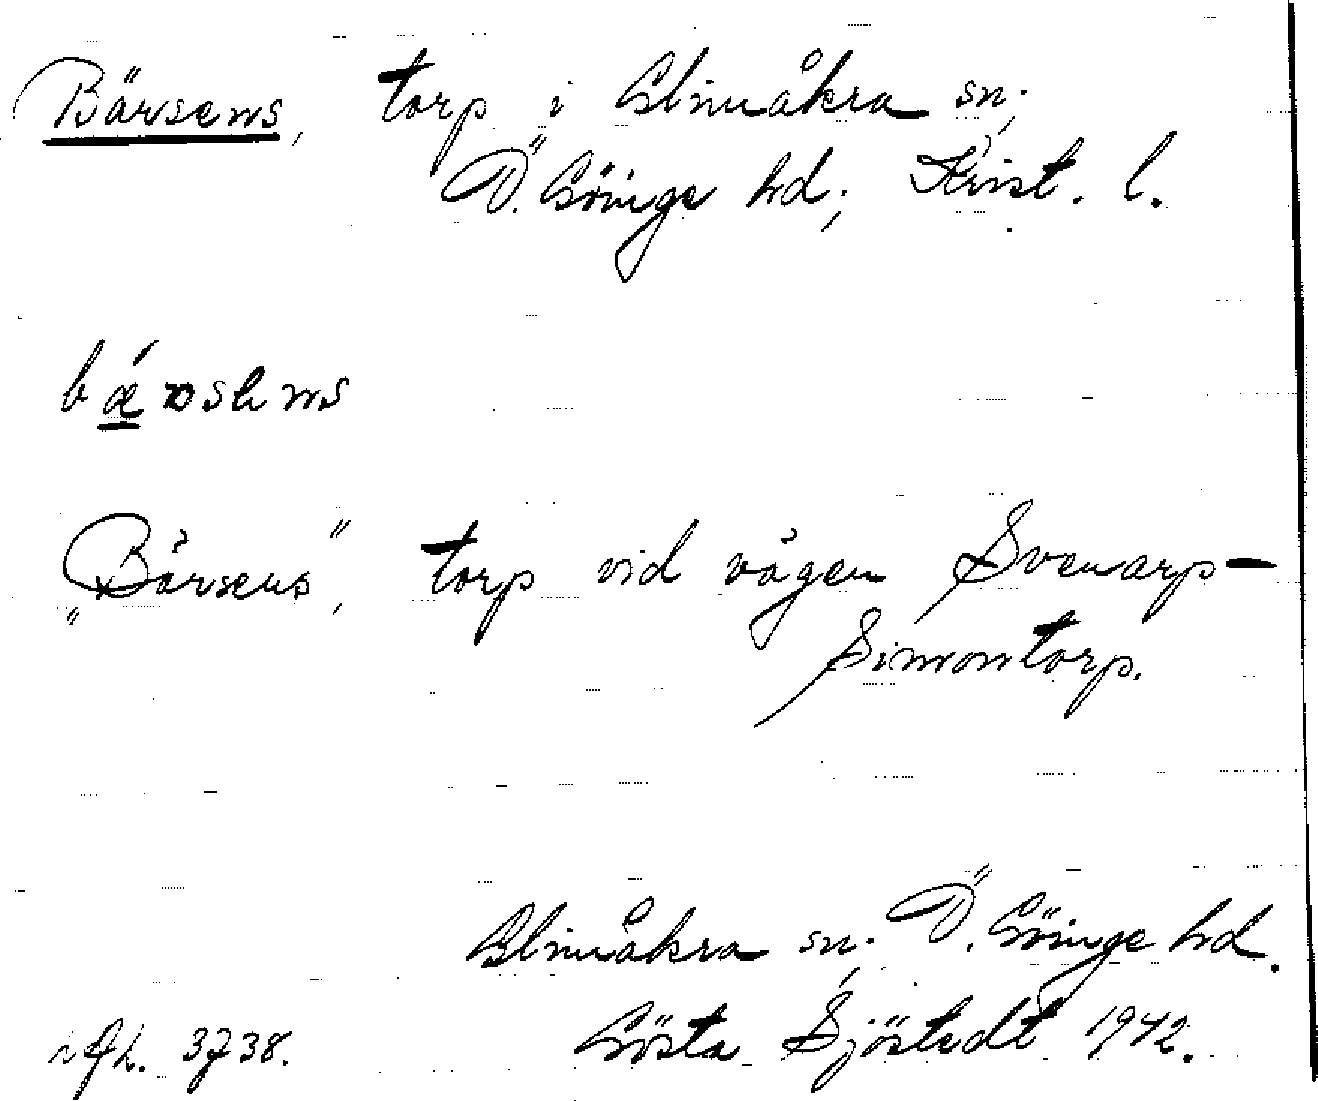 Bärsens, torp i Glimåkra sn;
Ö. Göinge hd; Krist. l.
"Bärsens", torp vid vägen Svenarp-
Simontorp.
Glimåkra sn. Ö. Göinge hd.
Gösta Sjöstedt 1942.
3738.